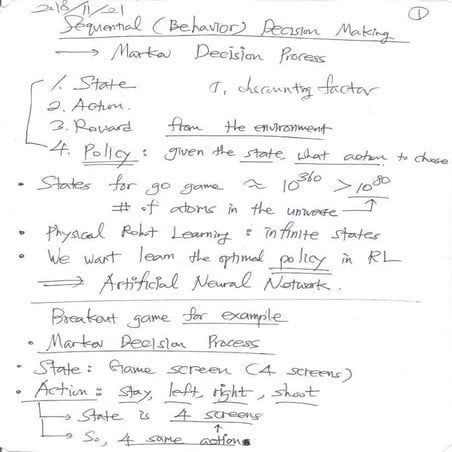 2018/11/21
①
Sequential (Behavior) Decision Making
→ Markov Decision Process
1. State σ, discounting factor
2. Action.
3. Reward from the environment
4. Policy : given the state, what action to choose
• States for go game ≈ 10^360 > 10^80
# of atoms in the universe
• Physical Robot Learning : infinite states
• We want learn the optimal policy in RL
⇒ Artificial Neural Network.
Breakout game for example
• Markov Decision Process
• State : Game screen (4 screens)
• Action : stay, left, right, shoot
→ State is 4 screens
→ So, 4 same actions